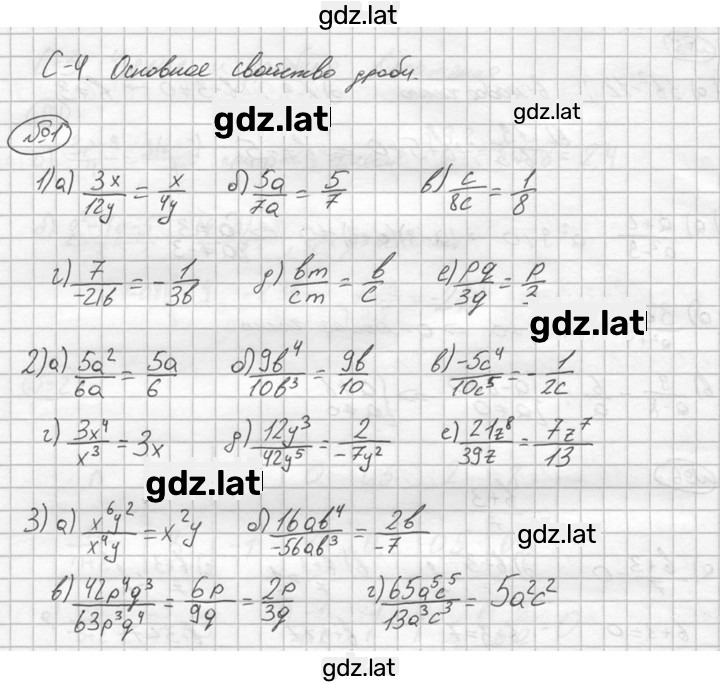 gdz.lat
С-4. Основное свойство дроби.
gdz.lat gdz.lat
№1
1) а) 3x/12y = x/4y б) 5a/7a = 5/7 в) c/8c = 1/8
г) 7/-21b = -1/3b д) bm/cm = b/c е) pq/3q = p/3
gdz.lat
2) а) 5a²/6a = 5a/6 б) 9b⁴/10b³ = 9b/10 в) -5c⁴/10c⁵ = -1/2c
г) 3x⁴/x³ = 3x д) 12y³/42y⁵ = 2/-7y² е) 21z⁸/39z = 7z⁷/13
gdz.lat
3) а) x⁶y²/x⁴y = x²y б) 16ab⁴/-56ab³ = 2b/-7 gdz.lat
в) 42p⁴q³/63p³q⁴ = 6p/9q = 2p/3q г) 65a⁵c⁵/13a³c³ = 5a²c²
gdz.lat